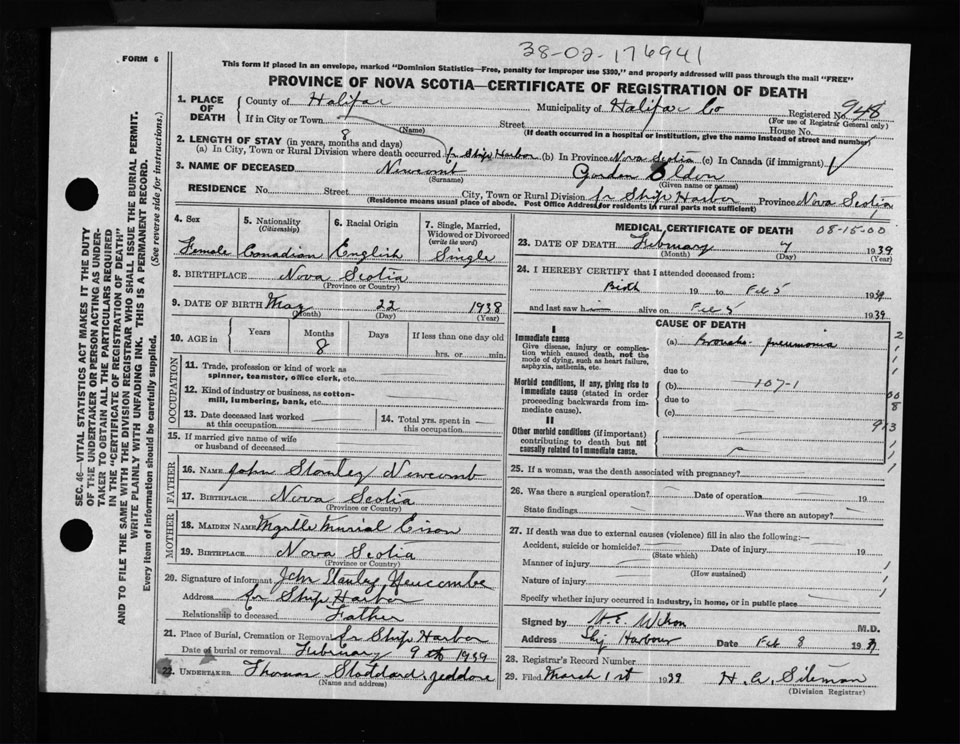 38-02-176941
FORM 6
This form if placed in an envelope, marked "Dominion Statistics—Free, penalty for improper use $300," and properly addressed will pass through the mail "FREE"
PROVINCE OF NOVA SCOTIA—CERTIFICATE OF REGISTRATION OF DEATH
SEC. 46—VITAL STATISTICS ACT MAKES IT THE DUTY
OF THE UNDERTAKER OR PERSON ACTING AS UNDER-
TAKER TO OBTAIN ALL THE PARTICULARS REQUIRED
IN THE "CERTIFICATE OF REGISTRATION OF DEATH"
AND TO FILE THE SAME WITH THE DIVISION REGISTRAR WHO SHALL ISSUE THE BURIAL PERMIT.
WRITE PLAINLY WITH UNFADING INK. THIS IS A PERMANENT RECORD.
Every item of information should be carefully supplied. (See reverse side for instructions.)
1. PLACE OF DEATH County of Halifax Municipality of Halifax Co Registered No. 948
(For use of Registrar General only)
If in City or Town Street House No.
(Name) (If death occurred in a hospital or institution, give the name instead of street and number)
2. LENGTH OF STAY (in years, months and days) 8
(a) In City, Town or Rural Division where death occurred Ship Harbor (b) In Province Nova Scotia (c) In Canada (if immigrant)
3. NAME OF DECEASED Newcomb Gordon Eldon
(Surname) (Given name or names)
RESIDENCE No. Street City, Town or Rural Division Ship Harbor Province Nova Scotia
(Residence means usual place of abode. Post Office Address for residents in rural parts not sufficient)
4. Sex 5. Nationality (Citizenship) 6. Racial Origin 7. Single, Married, Widowed or Divorced (write the word)
Female Canadian English Single
8. BIRTHPLACE Nova Scotia
(Province or Country)
9. DATE OF BIRTH May 22 1938
(Month) (Day) (Year)
10. AGE in Years Months Days If less than one day old
8 hrs. or min.
OCCUPATION
11. Trade, profession or kind of work as
spinner, teamster, office clerk, etc.
12. Kind of industry or business, as cotton-
mill, lumbering, bank, etc.
13. Date deceased last worked at this occupation 14. Total yrs. spent in this occupation
15. If married give name of wife
or husband of deceased
FATHER
16. NAME John Stanley Newcomb
17. BIRTHPLACE Nova Scotia
(Province or Country)
MOTHER
18. MAIDEN NAME Myrtle Murial
19. BIRTHPLACE Nova Scotia
(Province or Country)
20. Signature of informant John Stanley Newcombe
Address Ship Harbor
Relationship to deceased Father
21. Place of Burial, Cremation or Removal Ship Harbor
Date of burial or removal February 9th 1939
22. UNDERTAKER Thomas Stoddard Jeddore
(Name and address)
MEDICAL CERTIFICATE OF DEATH 08-15-00
23. DATE OF DEATH February 7 1939
(Month) (Day) (Year)
24. I HEREBY CERTIFY that I attended deceased from:
Birth 19 to Feb 5 1939
and last saw h alive on Feb 5 1939
CAUSE OF DEATH
I
Immediate cause
Give disease, injury or complica-
tion which caused death, not the
mode of dying, such as heart failure,
asphyxia, asthenia, etc.
(a) Broncho-pneumonia
due to
Morbid conditions, if any, giving rise to
immediate cause (stated in order
proceeding backwards from im-
mediate cause).
(b) 107-1
due to
(c)
II
Other morbid conditions (if important)
contributing to death but not
causally related to immediate cause.
25. If a woman, was the death associated with pregnancy?
26. Was there a surgical operation? Date of operation 19
State findings Was there an autopsy?
27. If death was due to external causes (violence) fill in also the following:—
Accident, suicide or homicide? Date of injury 19
(State which)
Manner of injury
(How sustained)
Nature of injury
Specify whether injury occurred in industry, in home, or in public place
Signed by Wilson M.D.
Address Ship Harbour Date Feb 8 19
28. Registrar's Record Number
29. Filed March 1st 1939 H. A. Siteman
(Division Registrar)